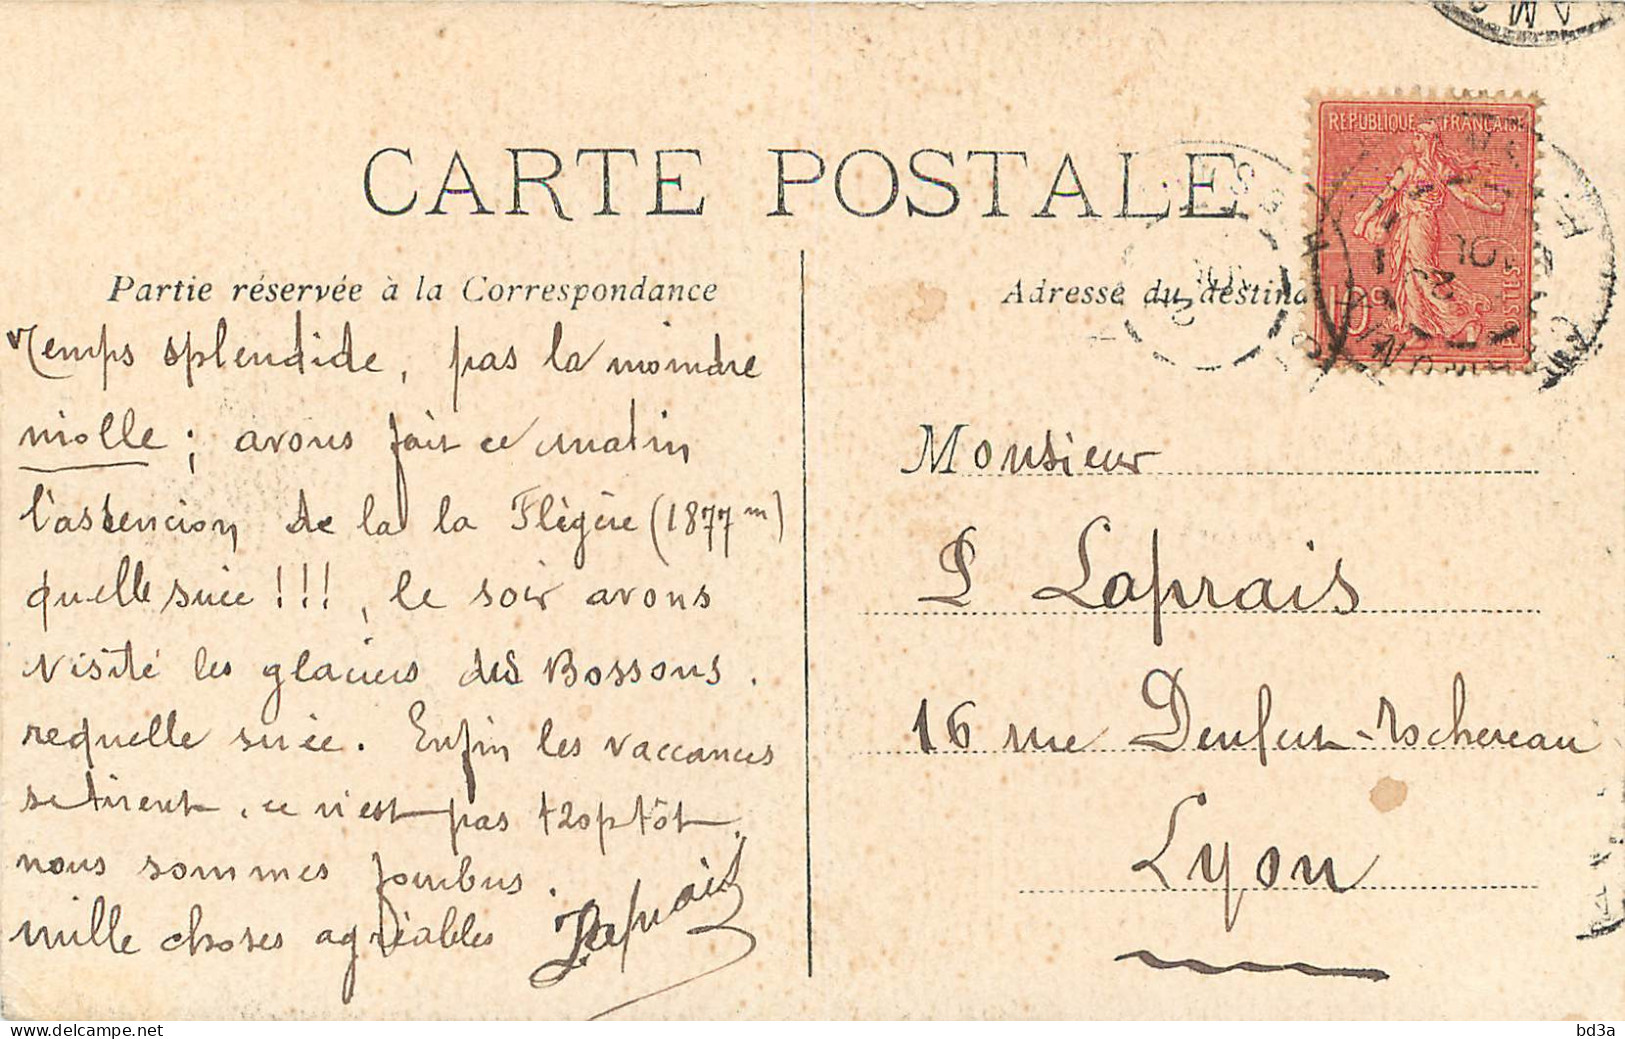 CARTE POSTALE
Partie réservée à la Correspondance
Temps splendide, pas la moindre
niolle ; avons fait ce matin
l'assencion de la la Flégère (1877m)
quelle suée !!!, le soir avons
visité les glaciers des Bossons.
requelle suée. Enfin les vaccances
se tirent. ce n'est pas troptôt.
nous sommes foubus.
mille choses agréables Laprais
Adresse du destina
REPUBLIQUE FRANÇAISE
10c
POSTES
Monsieur
P Laprais
16 rue Denfert-Rochereau
Lyon
delcampe.net
bd3a